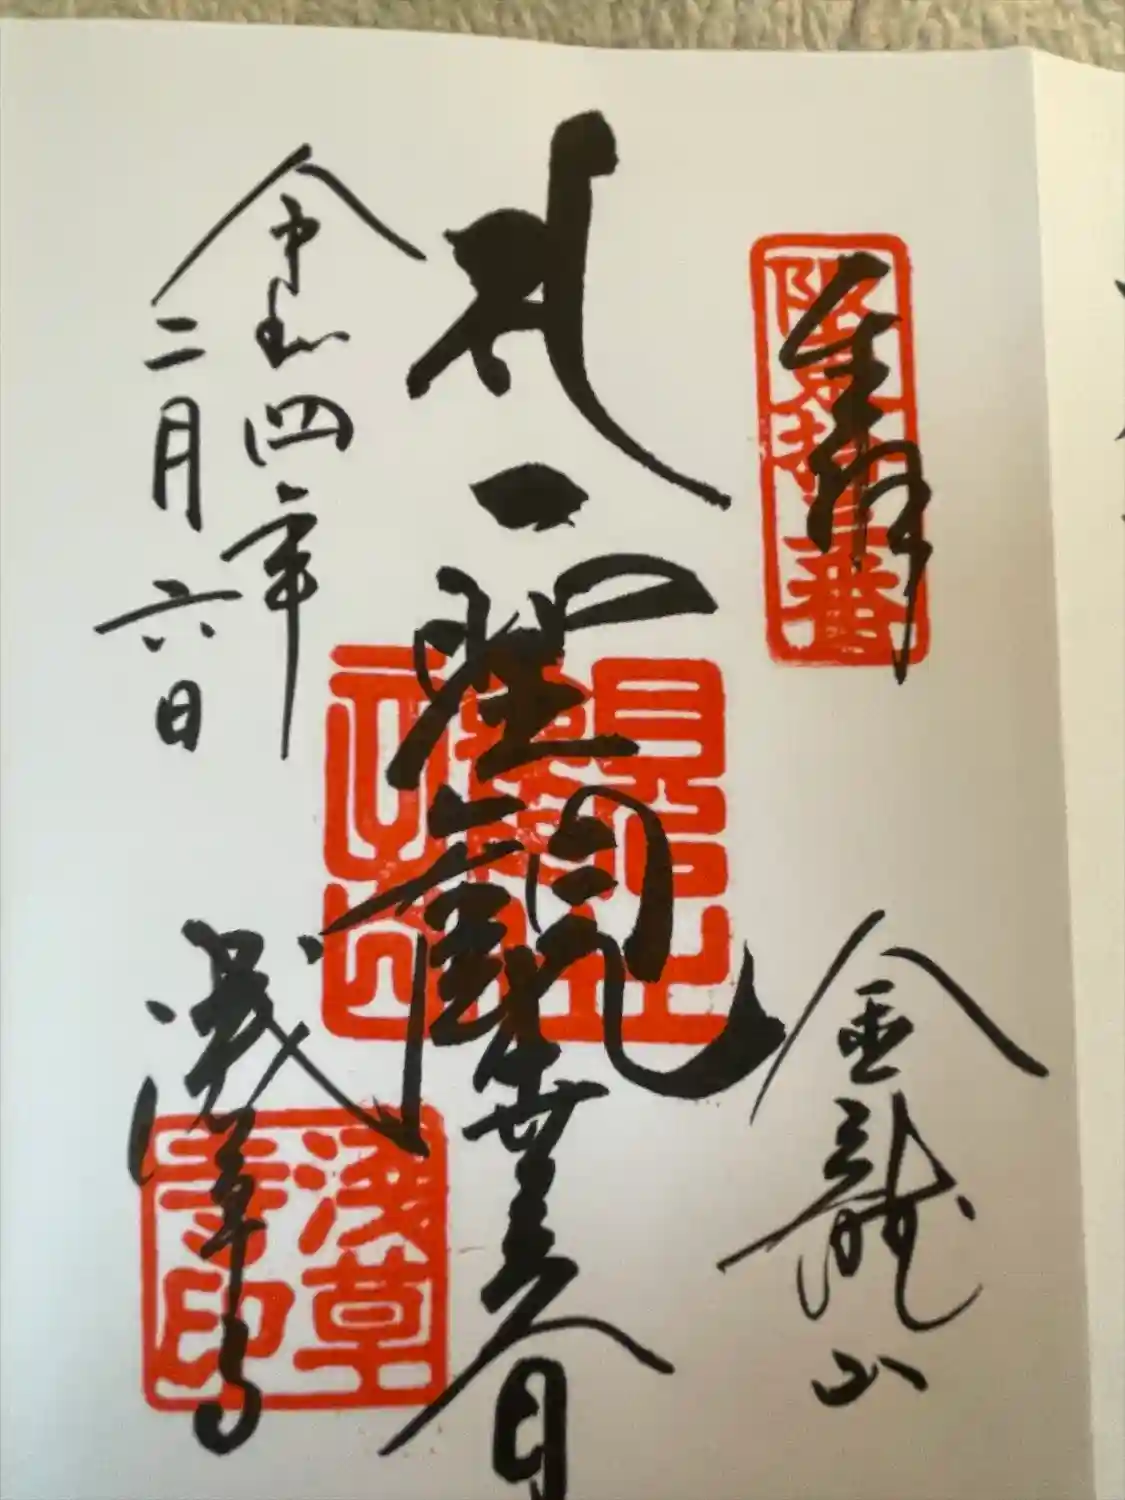 奉拝
阪東拾三番
金龍山
聖観世音
令和四年
二月六日
淺草寺
淺草寺印